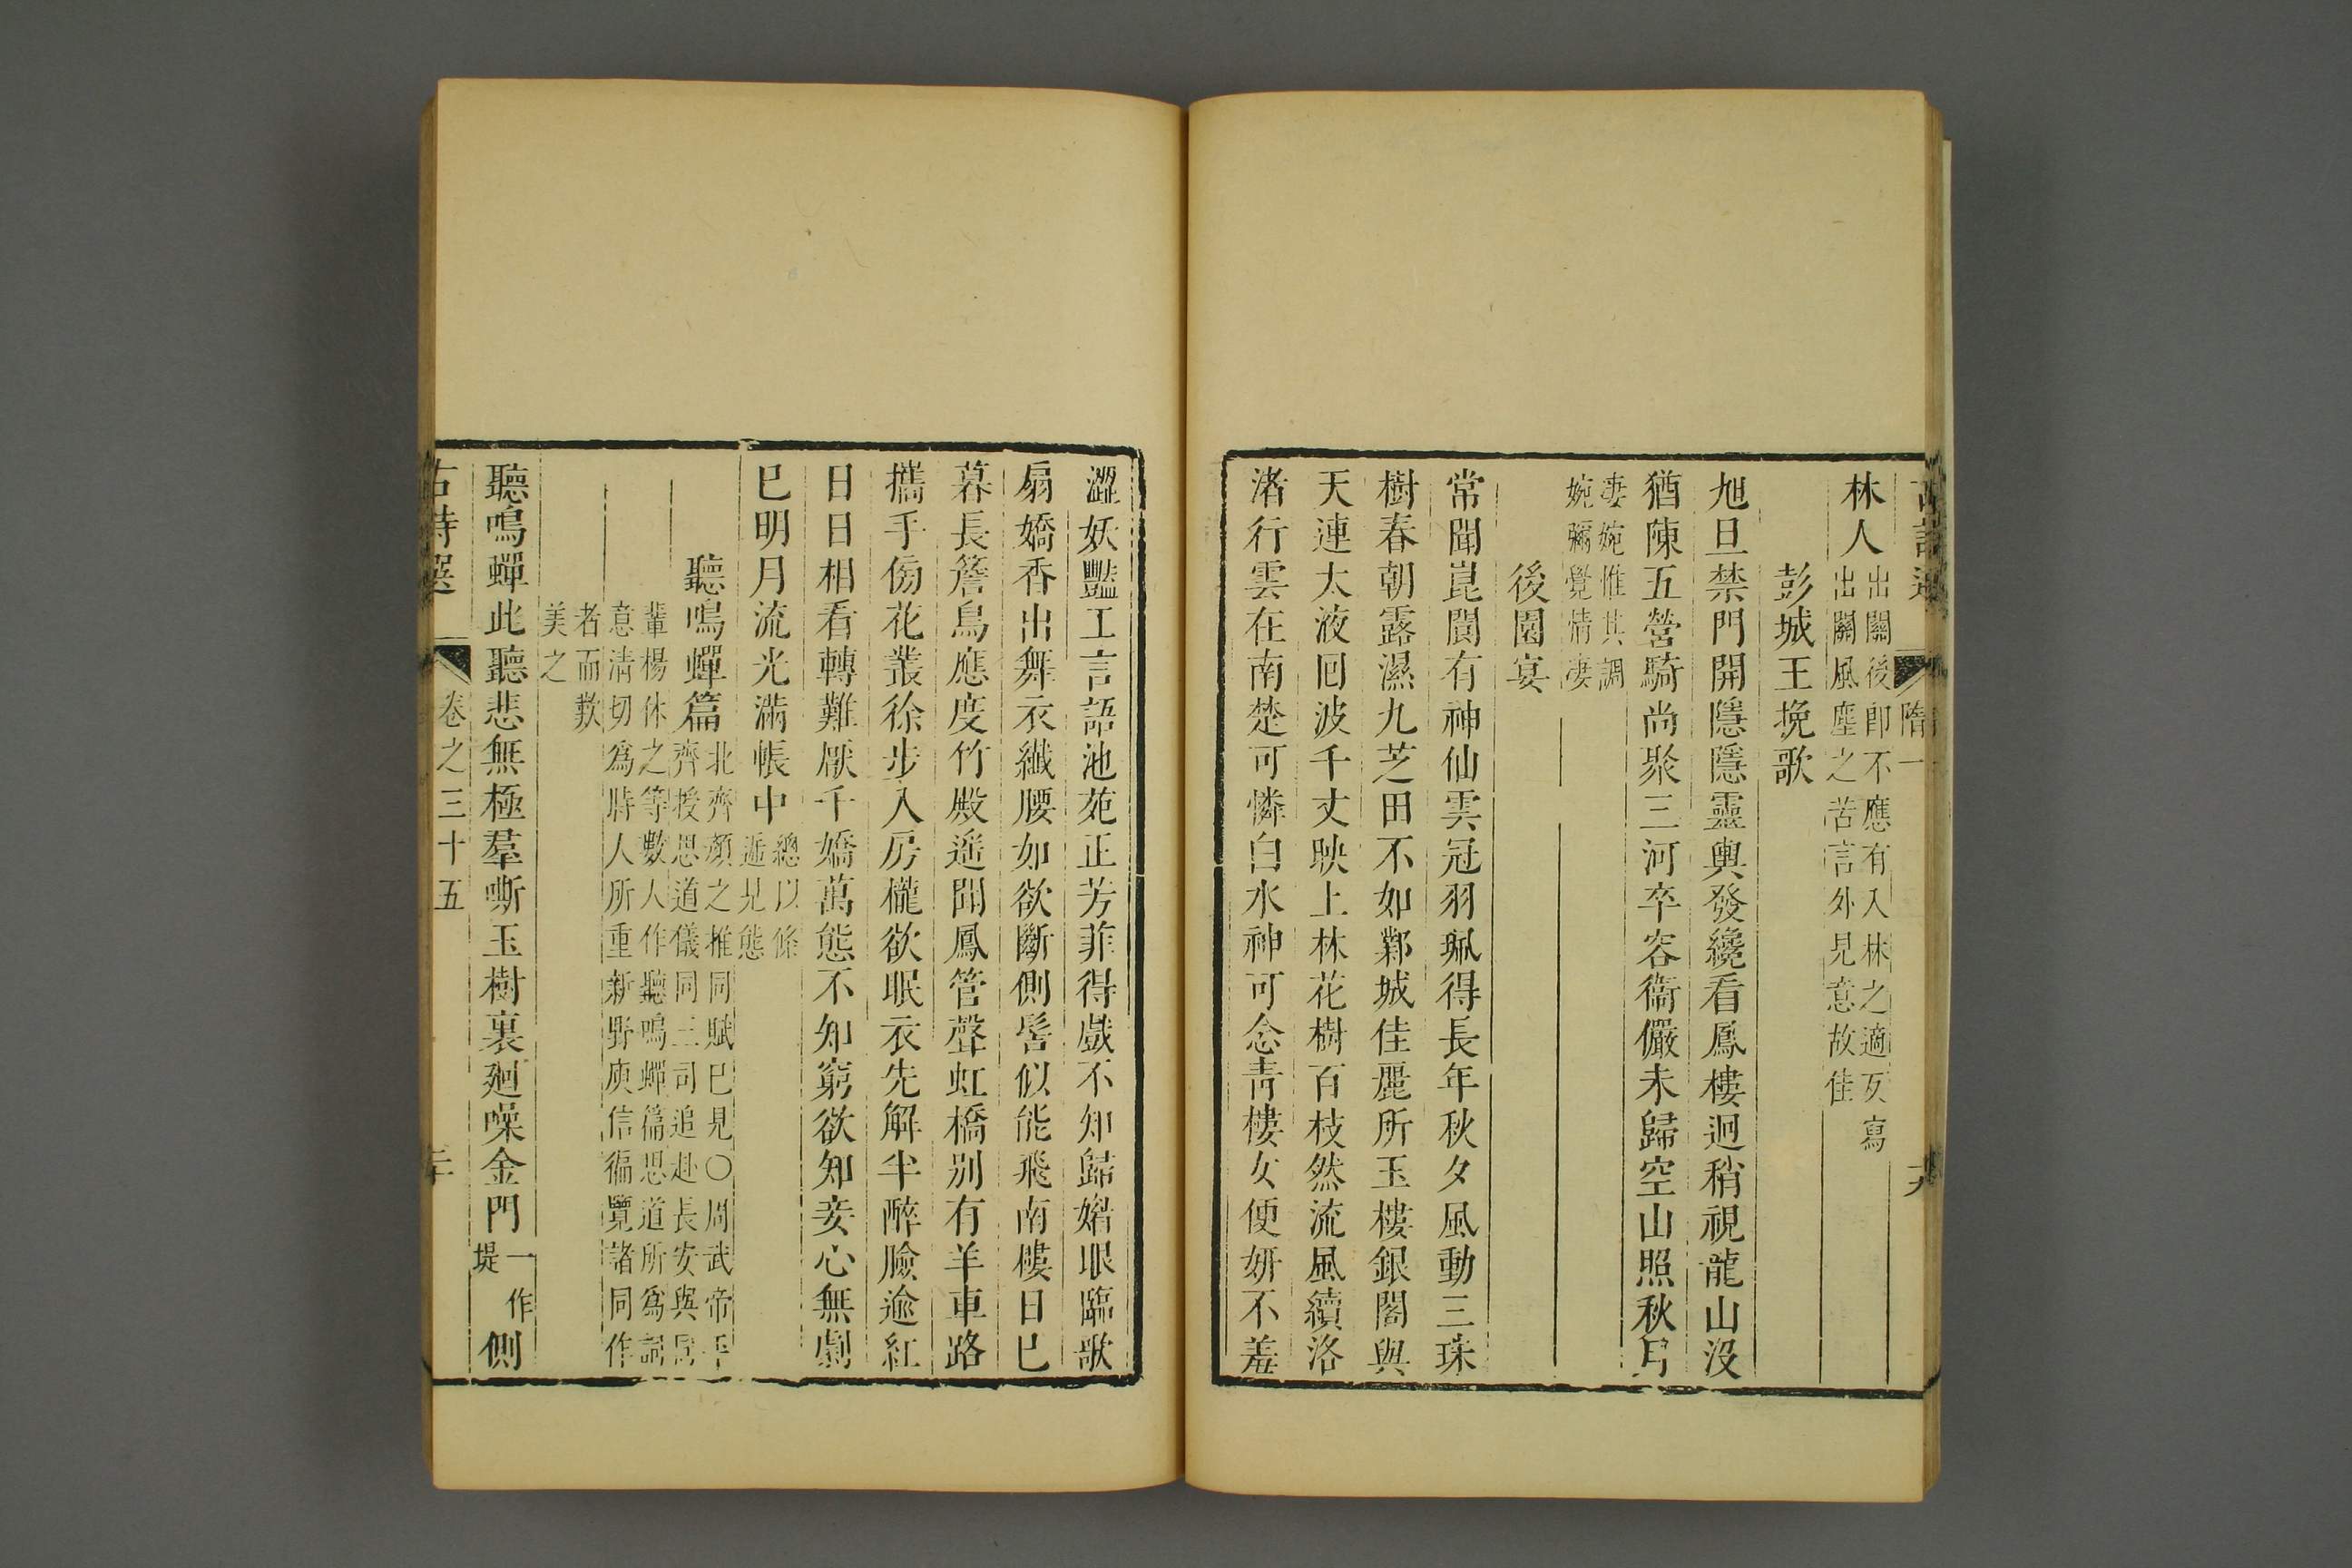 隋一
林人出關後卽不應有入林之適亥寫
出關風塵之苦言外見意故佳
彭城王挽歌
旭旦禁門開隱隱靈輿發纔看鳳樓迥稍視龍山沒
猶陳五營騎尚聚三河卒容衞儼未歸空山照秋月
凄婉惟其調
婉彌覺情凄
後園宴
常聞崑閬有神仙雲冠羽珮得長年秋夕風動三珠
樹春朝露濕九芝田不如鄴城佳麗所玉樓銀閣與
天連太液回波千丈映上林花樹百枝然流風續洛
渚行雲在南楚可憐白水神可念青樓女便妍不羞
澀妖豔工言語池苑正芳菲得戲不知歸媘眼臨歌
扇嬌香出舞衣纖腰如欲斷側髻似能飛南樓日已
暮長簷鳥應度竹殿遥聞鳳管聲虹橋別有羊車路
攜手傍花叢徐步入房櫳欲眠衣先解半醉臉逾紅
日日相看轉難厭千嬌萬態不知窮欲知妾心無劇
已明月流光滿帳中總以條
遞見態
聽鳴蟬篇北齊顏之推同賦已見〇周武帝平
齊授思道儀同三司追赴長安與同
輩楊休之等數人作聽鳴蟬篇思道所爲詞
意清切爲時人所重新野庾信徧覽諸同作
者而歎
美之
聽鳴蟬此聽悲無極羣嘶玉樹裏廻噪金門一作堤側
古詩選 卷之三十五